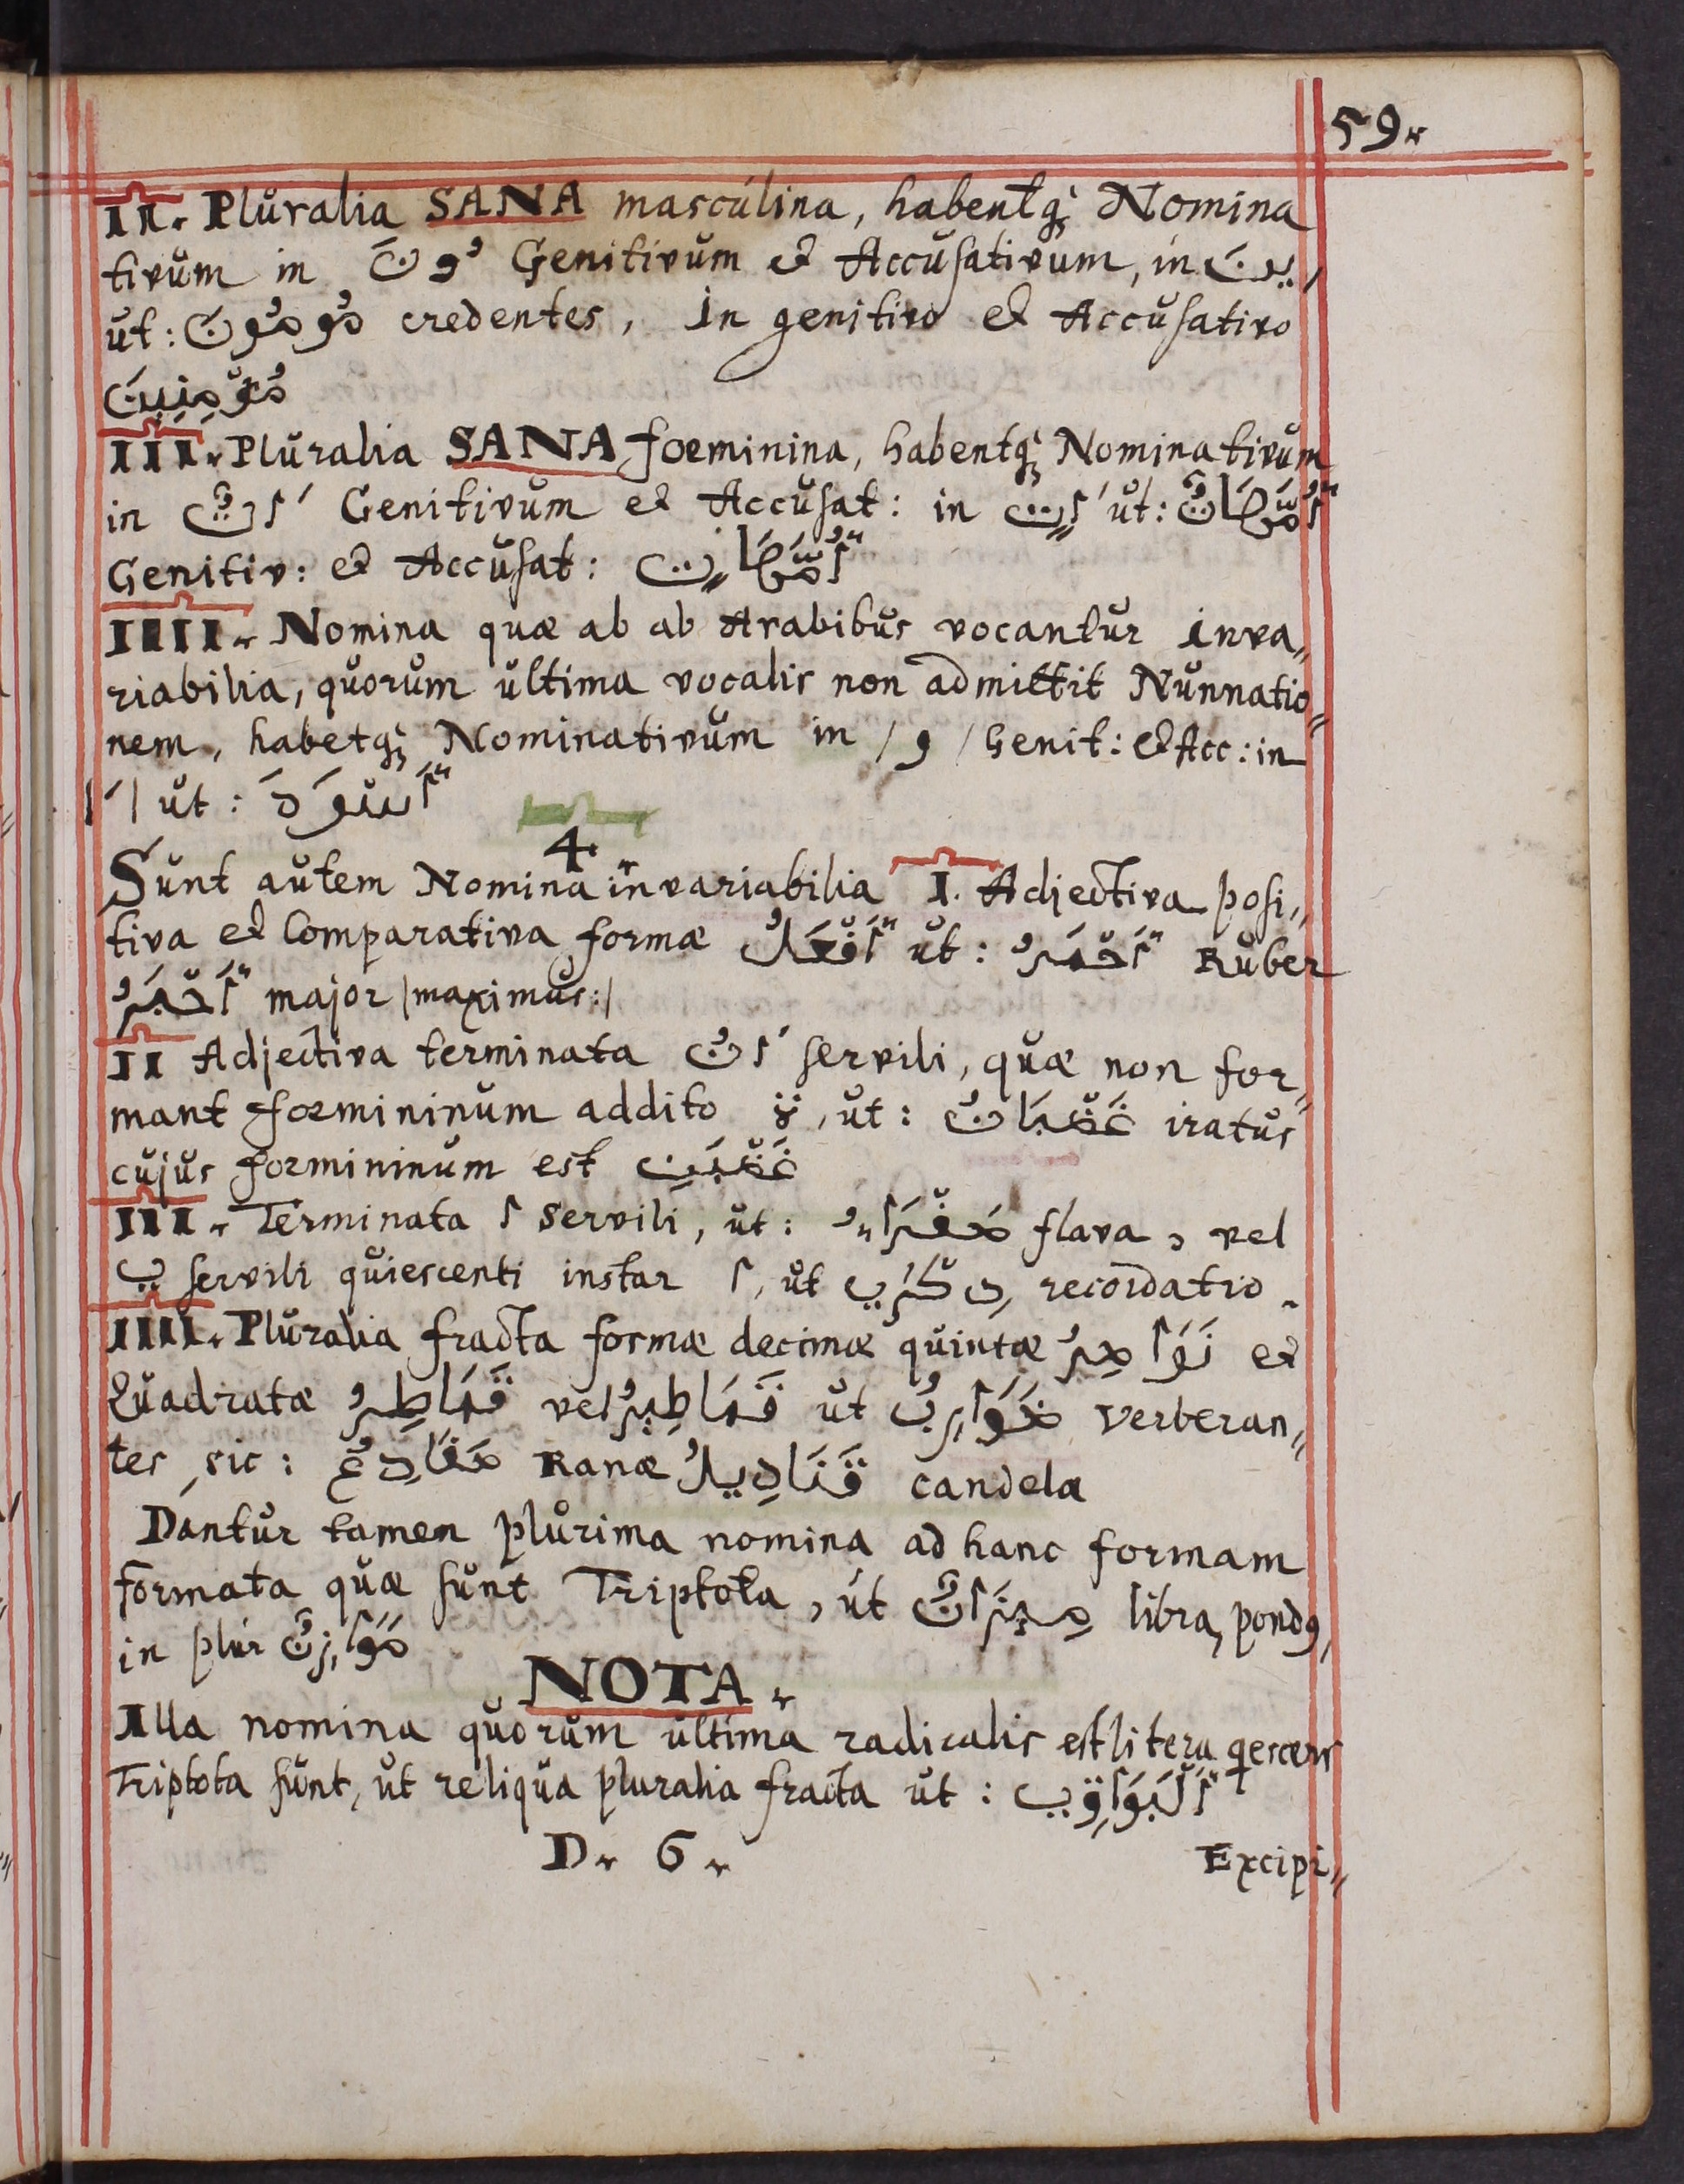 59.
II. Pluralia SANA masculina, habentq; Nomina
tivum in ُونَ Genitivum et Accusativum, in ِينَ
ut: مُومُونَ credentes, In genitivo et Accusativo
مُوْمِنِينَ
III. Pluralia SANA foeminina, habentq; Nominativum
in َاتٌ Genitivum et Accusat: in َاتٍ ut:
Genitiv: et Accusat:
IIII. Nomina quæ ab ab Arabibus vocantur inva„
riabilia, quorum ultima vocalis non admittit Nunnatio„
nem, habetq; Nominativum in / ُ / Genit: et Acc: in
/ َ / ut: أَسْوَدَ
4.
Sunt autem Nomina invariabilia I. Adjectiva posi„
tiva et Comparativa formæ أَفْعَلُ ut: أَحْمَرُ Ruber
major /maximus:/
II Adjectiva terminata َانُ servili, quæ non for„
mant foemininum addito ة, ut: غَضْبَانُ iratus
cujus formininum est
III. Terminata ا servili, ut: صَفْرَاءُ flava, vel
ي servili quiescenti instar ا, ut ذِكْرَي recordatio.
IIII. Pluralia fracta formæ decimæ quintæ نَوَاصِرُ et
Quadratæ قَمَاطِرُ vel قَمَاطِيرُ ut ضَوَارِبُ verberan„
tes, sic: ضَفَادِعُ Ranæ قَنَادِيلُ candela
Dantur tamen plurima nomina ad hanc formam
formata quæ sunt Triptota, ut مِيزَانٌ libra, pondq,
in plur مَوَازِنٌ
NOTA.
Illa nomina quorum ultima radicalis est litera qescens
Triptota sunt, ut reliqua pluralia fracta ut:
D. 6.
Excipi„